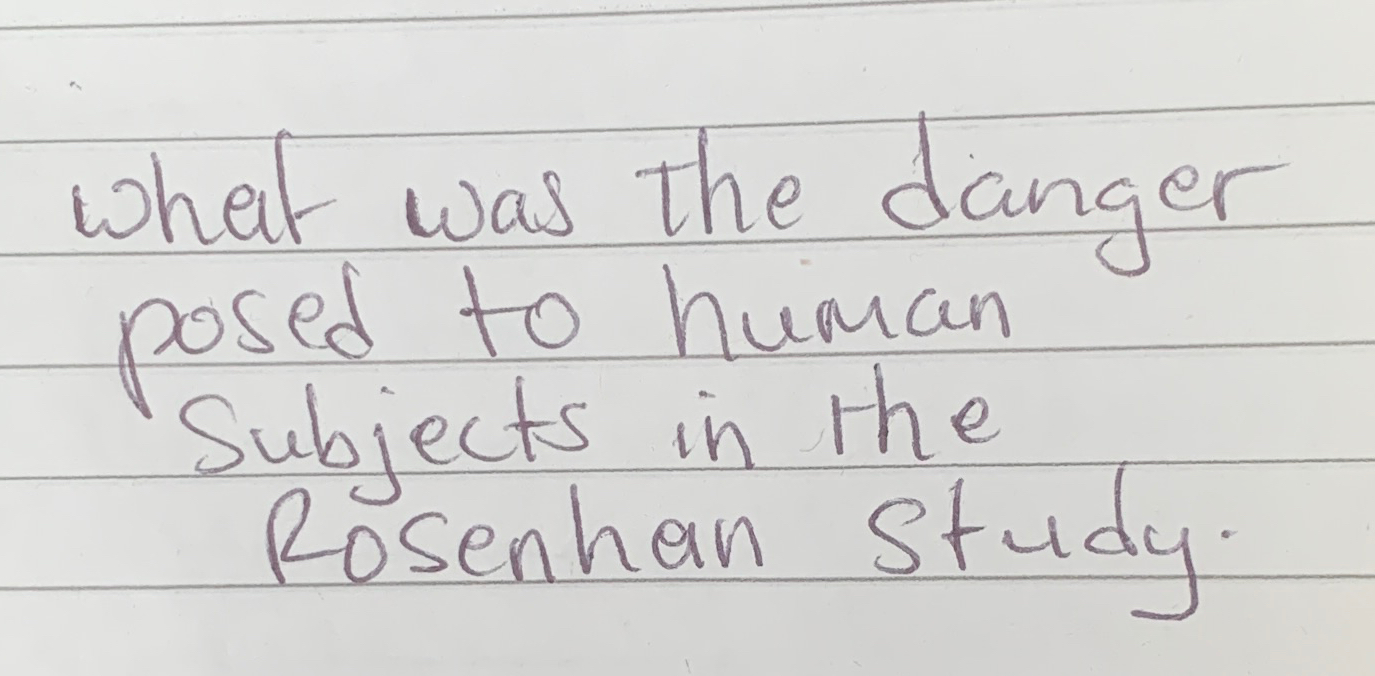 what was the danger
posed to human
Subjects in the
Rosenhan Study.